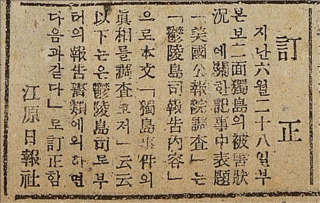 訂正
지난六月二十八일부
본보二面獨島의被害狀
況에關한記事中表題
「美國公報院調査」는
「鬱陵島司報告內容」
으로本文「獨島事件의
眞相를調査코저」云云
以下는은鬱陵島司로부
터의報告書類에의하면
다음과같다」로訂正함
江原日報社